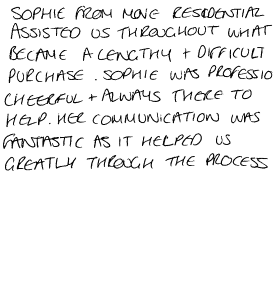 SOPHIE FROM MOVE RESIDENTIAL
ASSISTED US THROUGHOUT WHAT
BECAME A LENGTHY + DIFFICULT
PURCHASE. SOPHIE WAS PROFESSIO
CHEERFUL + ALWAYS THERE TO
HELP. HER COMMUNICATION WAS
FANTASTIC AS IT HELPED US
GREATLY THROUGH THE PROCESS